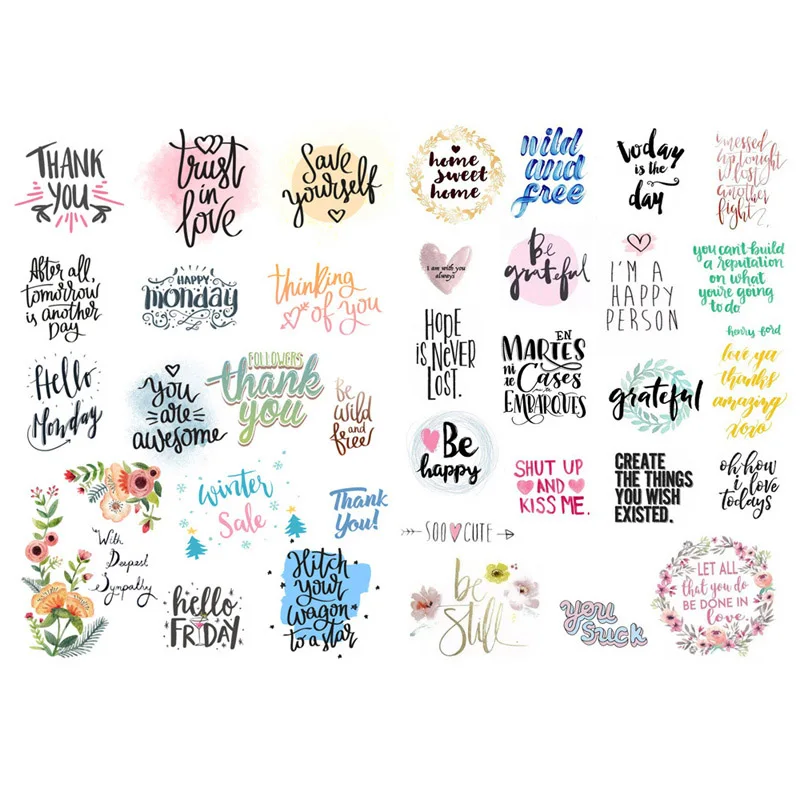 THANK
YOU
trust
in
love
Save
yourself
home
sweet
home
wild
and
free
today
is the
day
messed
up tonight
i lost
another
fight
After all,
tomorrow
is another
Day
HAPPY
monday
thinking
of you
I am with you
always
Be
grateful
I'M A
HAPPY
PERSON
you can't build
a reputation
on what
you're going
to do
henry ford
Hello
Monday
you
are
awesome
FOLLOWERS
thank
you
Be
wild
and
free!
HOPE
IS NEVER
LOST.
EN
MARTES
ni te
CASES
NI TE
EMBARQUES
grateful
love ya
thanks
amazing
xoxo
With
Deepest
Sympathy
winter
Sale
Thank
You!
Be
happy
SHUT UP
AND
KISS ME.
CREATE
THE THINGS
YOU WISH
EXISTED.
oh how
i love
todays
hello
FRIDAY
Hitch
your
wagon
to a star
SOO CUTE
be
Still.
you
suck
LET ALL
that you do
BE DONE IN
love.